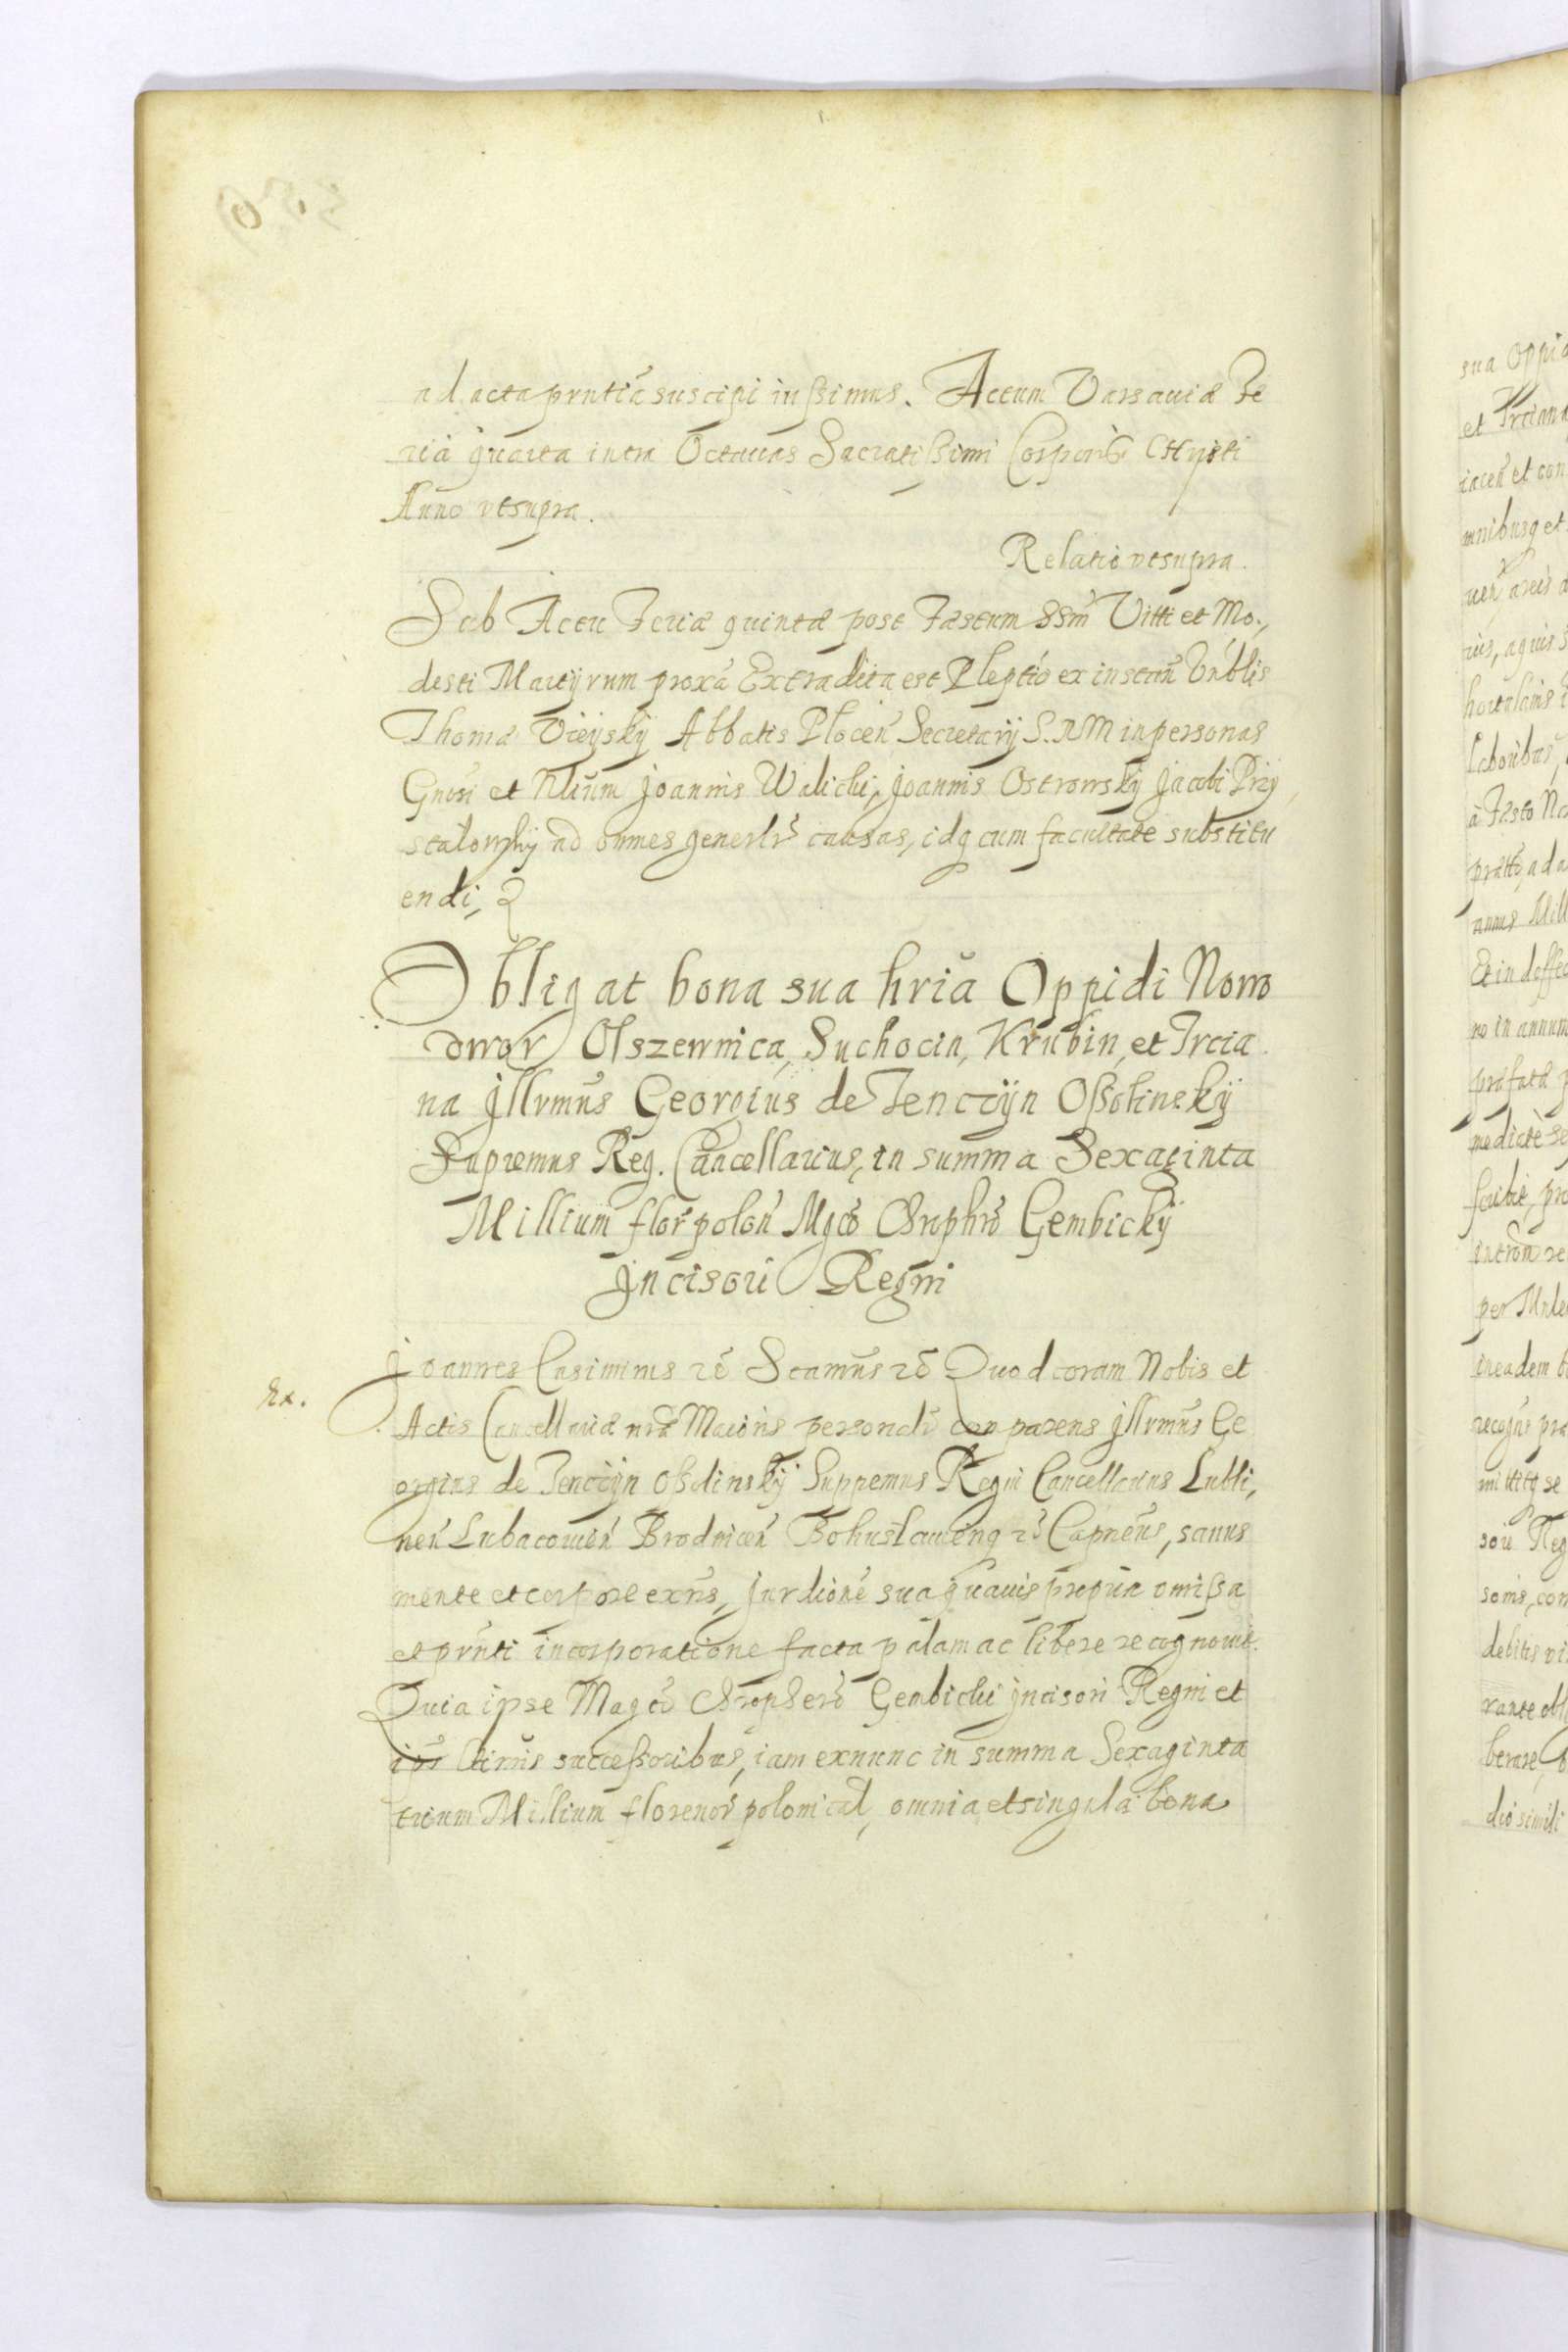 ad acta prntia suscipi iussimus. Actum Varsaviæ Fe
ria quarta intra Octauas Sacratissimi Corporis Christi
Anno vt supra.
Relatio vt supra.
Sub Actu Feriæ quintæ post Fæstum SSm Vitti et Mo„
desti Martyrum proxa Extradita est Pleptio ex instan Vrblis
Thomæ Vieysky Abbatis Plocen Secretarij S.RM in personas
Gnosi et Nlium Joannis Walichi, Joannis Ostrowsky Jacobi Przy
stalowsky ad omnes generlr causas, idq cum facultate substitu
endi,
Obligat bona sua hria Oppidi Nowo
dwor Olszewnica, Suchocin, Krubin, et Trcia
na Jllrmus Georgius de Tenczyn Ossolinsky
Supremus Reg. Cancellarius, in summa Sexaginta
Millium flor polon Mgco Chrophro Gembicky
Jncisori Regni
Ex.
Joannes Casimirus re Scamus re Quod coram Nobis et
Actis Cancellariæ nræ Maioris personalr comparens Jllrmus Ge
orgius de Tenczyn Ossolinsky Suppremus Regni Cancellarius Lubli„
nen Lubaczowien Brodnicen Bohuslauienq re Capneus, sanus
mente et corpore exns, Jurdione sua quauis propria omissa
et prnti incorporatione facta palam ac libere recognouit.
Quia ipse Magco Chrophero Gembicki Jncisori Regni et
ips ltimis successoribus, iam exnunc in summa Sexaginta
trium Millium florenor polonical, omnia et singula bona
sua Oppid
et Trciana
iacen et con
mnibusq et
uen areis a
hortulanis
Laboribus,
à Festo Na
annus Mill
Et in deffec
no in annum
præfatæ p
per Mnle
in eadem b
mittitq se
sori Reg
sonis, con
debitis vi
rante obl
berare,
dio simili